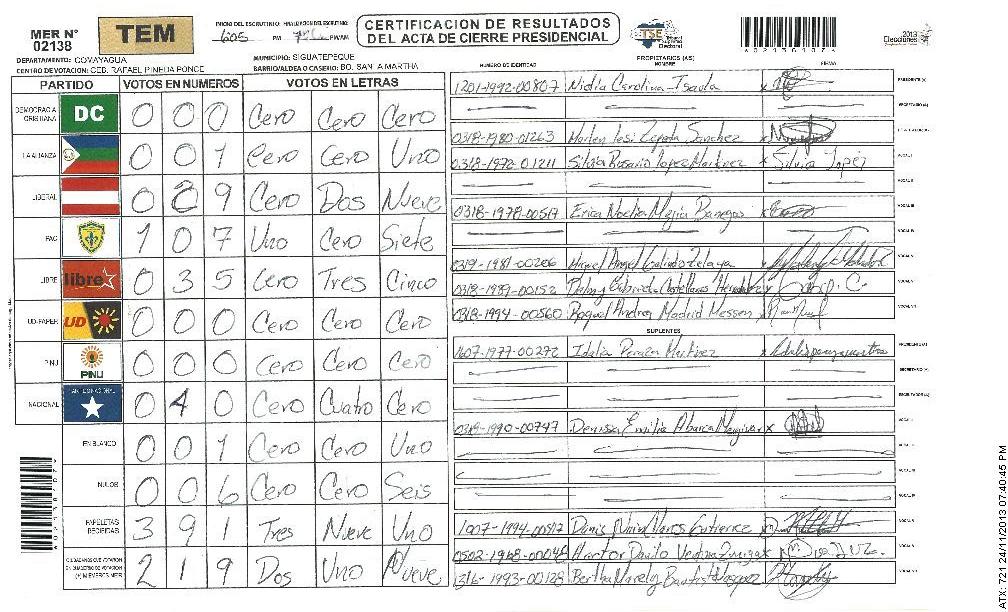 MER N° 02138
TEM
INICIO DEL ESCRUTINIO: 605 PM FINALIZACION DEL ESCRUTINIO: PM/AM
CERTIFICACION DE RESULTADOS
DEL ACTA DE CIERRE PRESIDENCIAL
TSE
Tribunal Supremo Electoral
2013 Elecciones
DEPARTAMENTO: COMAYAGUA
MUNICIPIO: SIGUATEPEQUE
CENTRO DE VOTACION: CEB. RAFAEL PINEDA PONCE
BARRIO/ALDEA O CASERIO: BO. SANTA MARTHA
PROPIETARIOS (AS)
NUMERO DE IDENTIDAD NOMBRE FIRMA
PARTIDO VOTOS EN NUMEROS VOTOS EN LETRAS
DEMOCRACIA CRISTIANA DC 0 0 0 Cero Cero Cero
LA ALIANZA 0 0 1 Cero Cero Uno
LIBERAL 0 2 9 Cero Dos Nueve
PAC 1 0 7 Uno Cero Siete
LIBRE libre 0 3 5 Cero Tres Cinco
UD-FAPER UD 0 0 0 Cero Cero Cero
PINU PINU 0 0 0 Cero Cero Cero
NACIONAL 0 4 0 Cero Cuatro Cero
EN BLANCO 0 0 1 Cero Cero Uno
NULOS 0 0 6 Cero Cero Seis
PAPELETAS RECIBIDAS 3 9 1 Tres Nueve Uno
CIUDADANOS QUE VOTARON EN CUADERNO DE VOTACION (+) MIEMBROS MER 2 1 9 Dos Uno Nueve
1201-1992-00807 Nidia Carolina Isaula PRESIDENTE(A)
SECRETARIO (A)
0318-1980-01263 Marlen Zepeda Sanchez
0318-1972-01211 Silvia Rosario Lopez Martinez Silvia Lopez VOCAL I
VOCAL II
0318-1978-00517 Erica Noelia Mejia Banegas VOCAL III
VOCAL IV
0319-1981-00206 Miguel Angel Galindo Zelaya VOCAL V
0318-1989-00152 Gabriela Castellanos Hernandez
0318-1994-00560 Raquel Andrea Madrid Messen
SUPLENTES
1607-1977-00272 Idalia Peraza Martinez PRESIDENTE(A)
SECRETARIO (A)
ESCRUTADOR (A)
0318-1990-00747 Denissa Emilia Abarca VOCAL I
VOCAL II
VOCAL III
VOCAL IV
1007-1994-00517 Gutierrez VOCAL V
0502-1968-00048 Hector Danilo
1316-1993-00128 Bertha Marely Bautista Vasquez
ATX 721 24/11/2013 07:40:45 PM